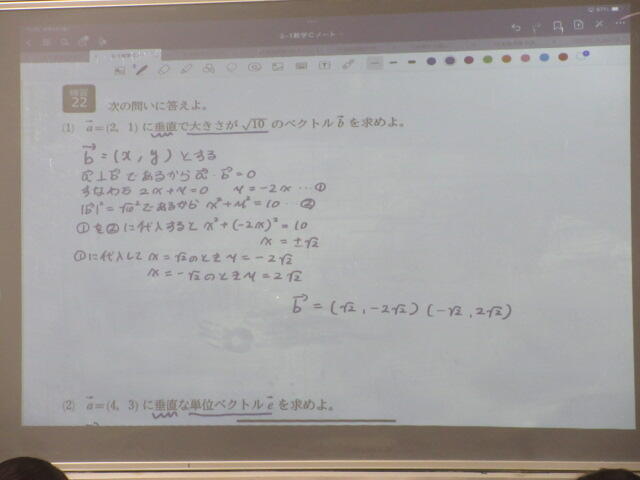 3-1数学Cノート
練習
22
次の問いに答えよ。
(1) a⃗=(2, 1) に垂直で大きさが √10 のベクトル b⃗ を求めよ。
b⃗ = (x, y) とする
a⃗⊥b⃗ であるから a⃗・b⃗=0
すなわち 2x+y=0 y=-2x …①
|b⃗|²=√10²であるから x²+y²=10 …②
①を②に代入すると x²+(-2x)²=10
x=±√2
①に代入して x=√2のとき y=-2√2
x=-√2のとき y=2√2
b⃗ = (√2, -2√2) (-√2, 2√2)
(2) a⃗=(4, 3) に垂直な単位ベクトル e⃗ を求めよ。